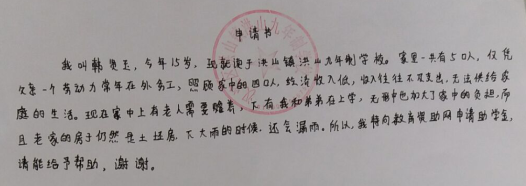 申请书
我叫韩贤玉，今年15岁，现就读于洪山镇洪山九年制学校。家里一共有5口人，仅凭
父亲一个劳动力常年在外务工，照顾家中的四口人，经济收入低，收入往往不及支出，无法供给家
庭的生活。现在家中上有老人需要赡养，下有我和弟弟在上学，无形中也加大了家中的负担，而
且老家的房子仍然是土坯房，下大雨的时候，还会漏雨。所以，我特向教育资助网申请助学金，
请能给予帮助，谢谢。